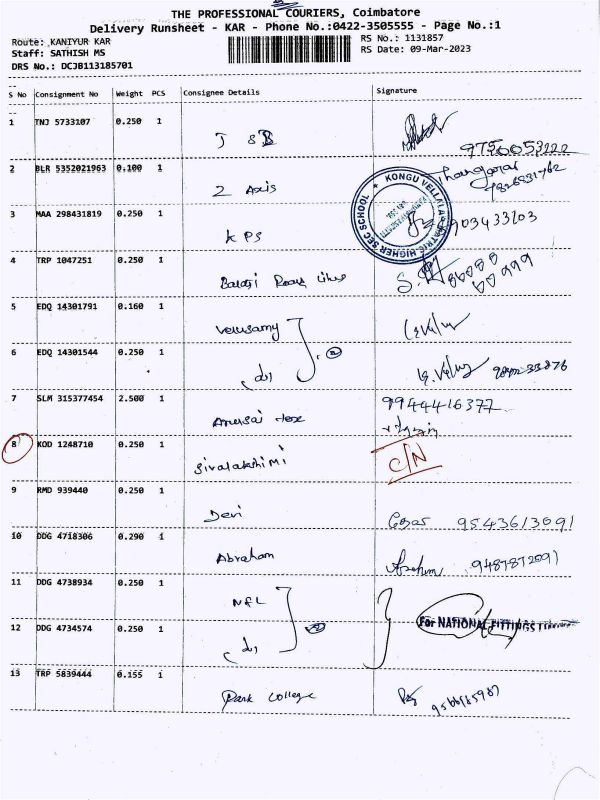 THE PROFESSIONAL COURIERS, Coimbatore
Delivery Runsheet - KAR - Phone No.:0422-3505555 - Page No.:1
Route: KANIYUR KAR
RS No.: 1131857
Staff: SATHISH MS
RS Date: 09-Mar-2023
DRS No.: DCJB113185701
S No Consignment No Weight PCS Consignee Details Signature
1 TNJ 5733107 0.250 1
9750053222
2 BLR 5352021963 0.100 1 2 Axis Thangaraj
KONGU VELLALAR MATRIC HIGHER SEC SCHOOL
3 MAA 298431819 0.250 1 KPS
4 TRP 1047251 0.250 1 Balaji
5 EDQ 14301791 0.160 1 Velusamy
6 EDQ 14301544 0.250 1 (2)
7 SLM 315377454 2.500 1 9944416377
8 KOD 1248710 0.250 1 Sivalakshimi C/N
9 RMD 939440 0.250 1 Devi 9543613091
10 DDG 4718306 0.290 1 Abraham 9487872091
11 DDG 4738934 0.250 1 NFL
For NATIONAL FITTINGS
12 DDG 4734574 0.250 1
13 TRP 5839444 0.155 1 Park College